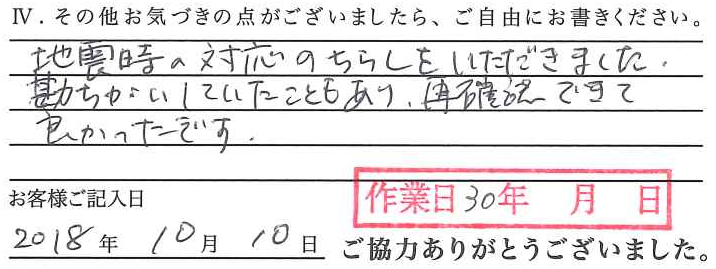 Ⅳ．その他お気づきの点がございましたら、ご自由にお書きください。
地震時の対応のちらしをいただきました.
勘ちがいしていたこともあり、再確認できて
良かったです.
お客様ご記入日
作業日30年 月 日
2018年 10月 10日 ご協力ありがとうございました。